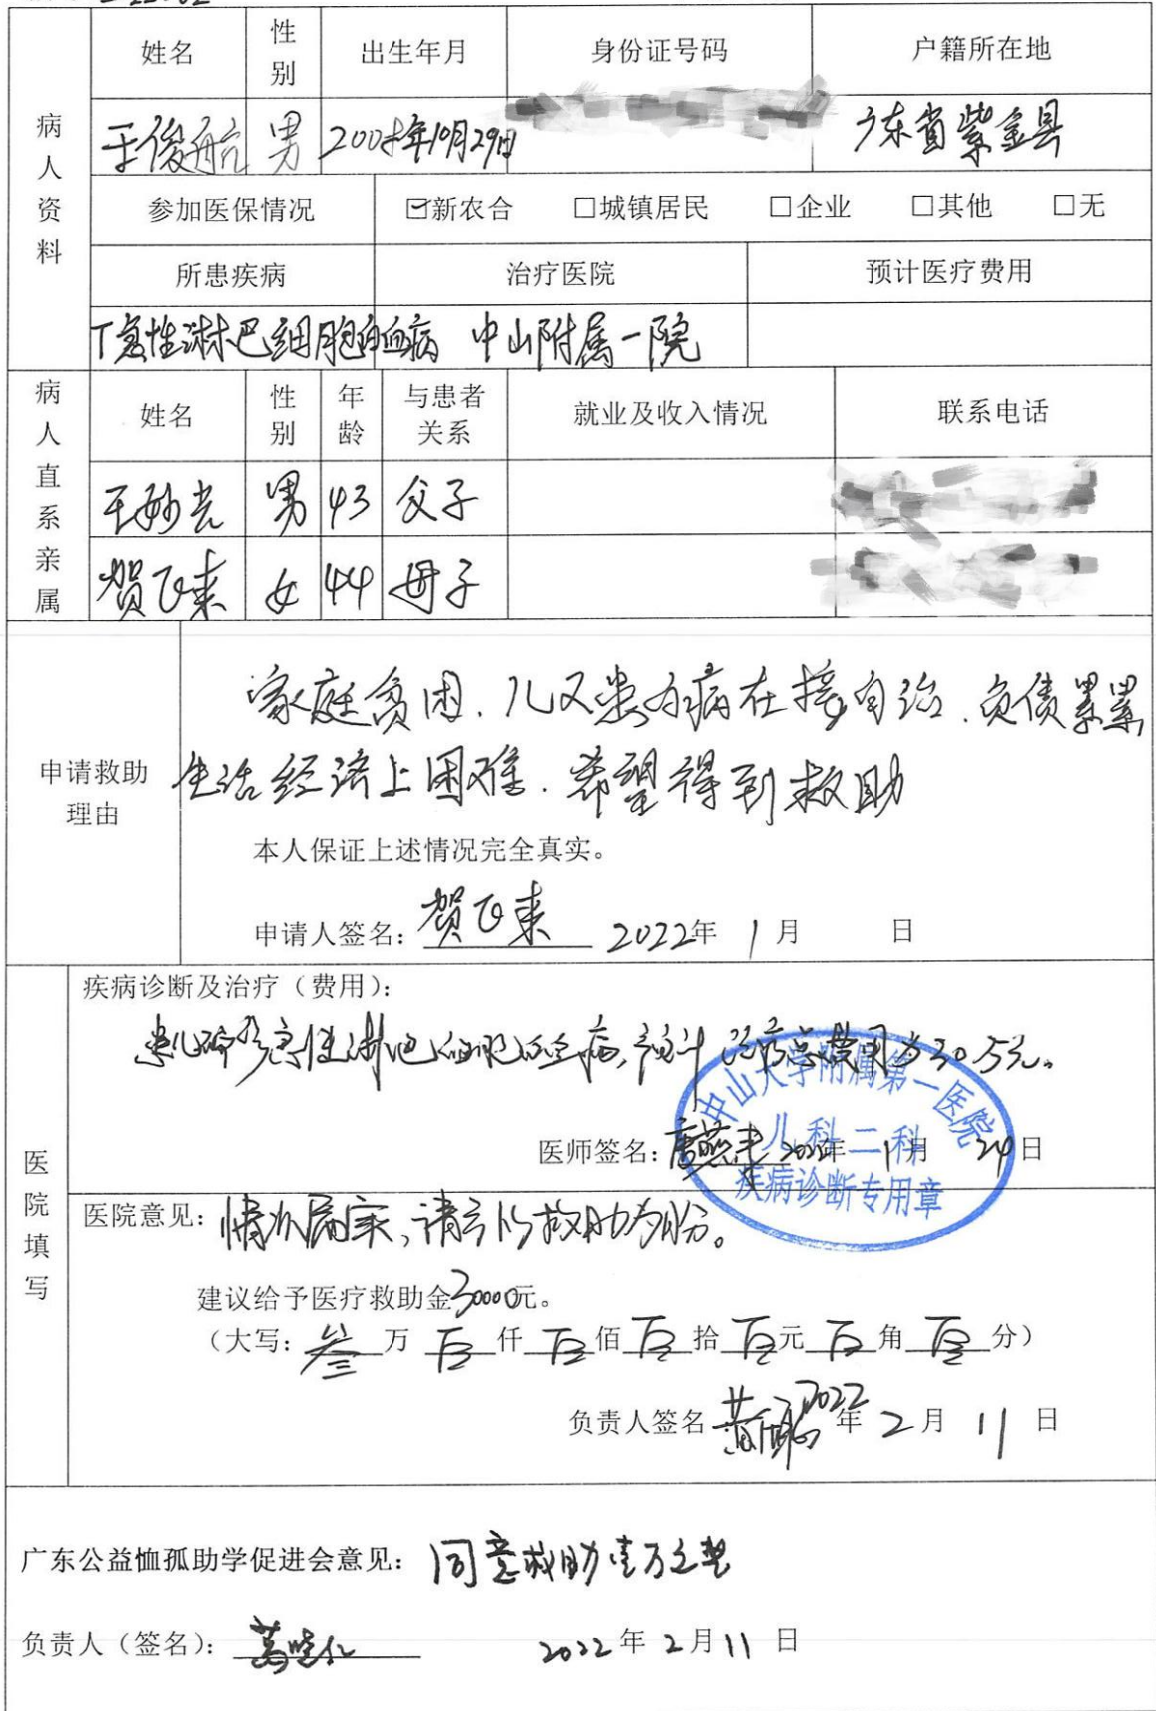 姓名 性别 出生年月 身份证号码 户籍所在地
病人资料
王俊航 男 2008年10月29日 广东省紫金县
参加医保情况 ☑新农合 □城镇居民 □企业 □其他 □无
所患疾病 治疗医院 预计医疗费用
T急性淋巴细胞白血病 中山附属一院
病人直系亲属
姓名 性别 年龄 与患者关系 就业及收入情况 联系电话
王妙光 男 43 父子
贺飞来 女 44 母子
申请救助理由
家庭贫困、儿又患病在接治、负债累累
生活经济上困难、希望得到救助
本人保证上述情况完全真实。
申请人签名: 贺飞来 2022年 1月 日
医院填写
疾病诊断及治疗（费用）：
患儿确诊急性淋巴细胞白血病,预计治疗总费用为30万元。
中山大学附属第一医院
儿科二科
疾病诊断专用章
医师签名: 2022年 1月 24日
医院意见: 情况属实、请予以救助为盼。
建议给予医疗救助金30000元。
（大写: 叁万零仟零佰零拾零元零角零分）
负责人签名 2022年 2月 11日
广东公益恤孤助学促进会意见: 同意救助壹万元整
负责人（签名）: 2022年 2月 11日